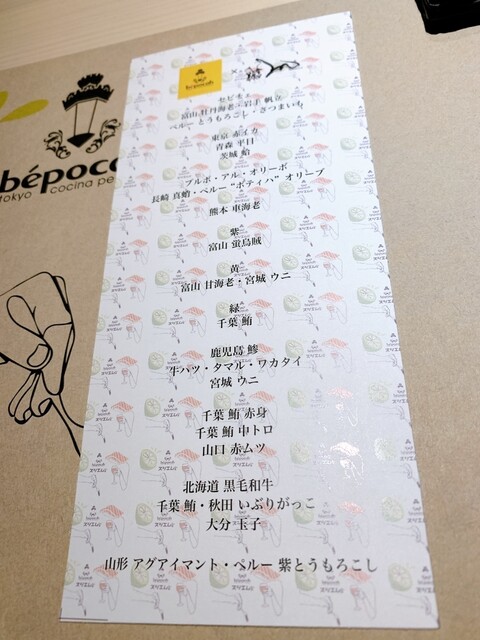 bépoca
tokyo
cocina pe
bépocah
×
セビチェ
富山 牡丹海老・岩手 帆立
ペルー とうもろこし・さつまいも
東京 赤イカ
青森 平目
茨城 蛤
プルポ・アル・オリーボ
長崎 真蛸・ペルー “ボティハ” オリーブ
熊本 車海老
紫
富山 蛍烏賊
黄
富山 甘海老・宮城 ウニ
緑
千葉 鮪
鹿児島 鯵
牛ハツ・タマル・ワカタイ
宮城 ウニ
千葉 鮪 赤身
千葉 鮪 中トロ
山口 赤ムツ
北海道 黒毛和牛
千葉 鮪・秋田 いぶりがっこ
大分 玉子
山形 アグアイマント・ペルー 紫とうもろこし